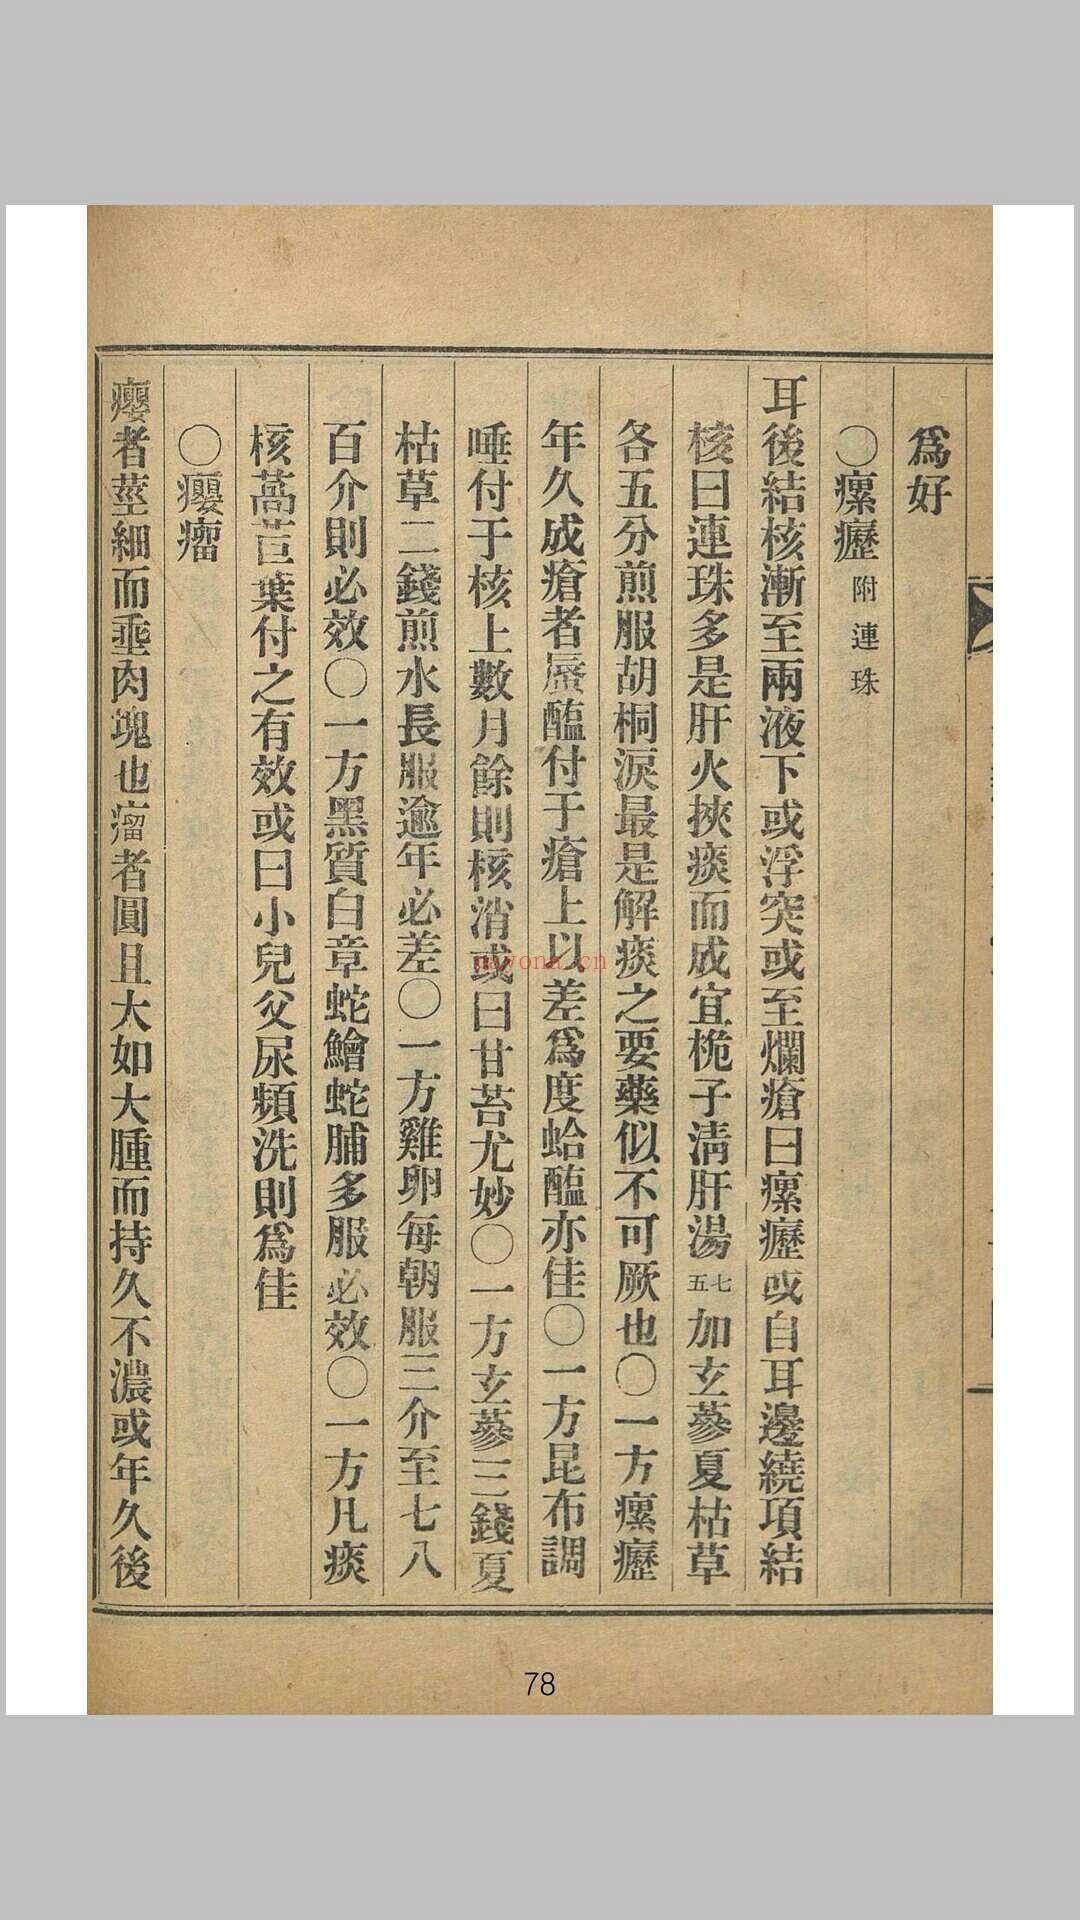 爲好
〇瘰癧附連珠
耳後結核漸至兩液下或浮突或至爛瘡曰瘰癧或自耳邊繞項結
核曰連珠多是肝火挾痰而成宜梔子淸肝湯七五加玄蔘夏枯草
各五分煎服胡桐淚最是解痰之要藥似不可厥也〇一方瘰癧
年久成瘡者蜃醢付于瘡上以差爲度蛤醢亦佳〇一方昆布調
唾付于核上數月餘則核消或曰甘苔尤妙〇一方玄蔘三錢夏
枯草二錢煎水長服逾年必差〇一方雞卵每朝服三介至七八
百介則必效〇一方黑質白章蛇鱠蛇脯多服必效〇一方凡痰
核萵苣葉付之有效或曰小兒父尿頻洗則爲佳
〇癭瘤
癭者莖細而垂肉塊也瘤者圓且大如大腫而持久不濃或年久後
nayona.cn
78